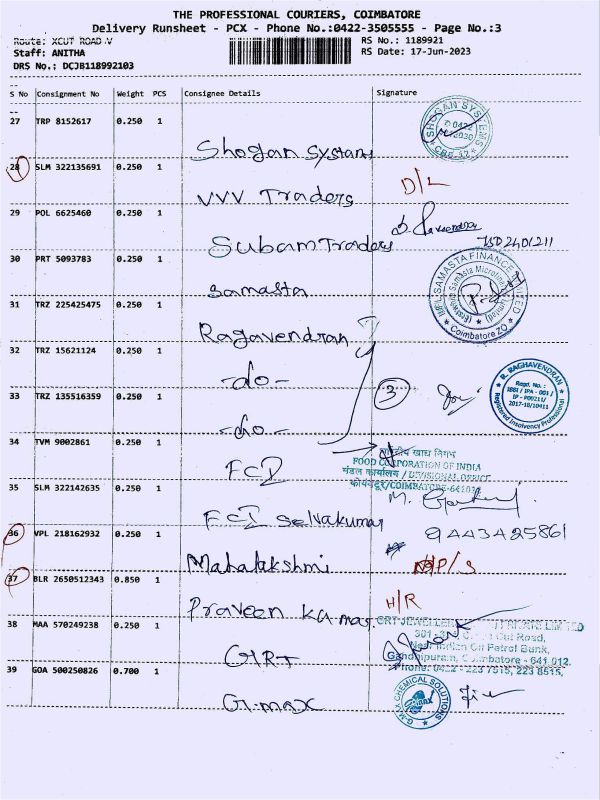 THE PROFESSIONAL COURIERS, COIMBATORE
Delivery Runsheet - PCX - Phone No.:0422-3505555 - Page No.:3
Route: XCUT ROAD V
RS No.: 1189921
Staff: ANITHA
RS Date: 17-Jun-2023
DRS No.: DCJB118992103
S No Consignment No Weight PCS Consignee Details Signature
27 TRP 8152617 0.250 1
Shogan Systems
SHOGAN SYSTEMS
CBE-12
28 SLM 322135691 0.250 1
VVV Traders
D/L
29 POL 6625460 0.250 1
Subam Traders
30 PRT 5093783 0.250 1
Samasta
IIFL SAMASTA FINANCE LIMITED
Coimbatore ZO
31 TRZ 225425475 0.250 1
Ragavendran
32 TRZ 15621124 0.250 1
-do-
33 TRZ 135516359 0.250 1
-do-
3
R. RAGHAVENDRAN
Regd. No.:
IBBI / IPA - 001 /
IP - P00211/
2017-18/10411
Registered Insolvency Professional
34 TVM 9002861 0.250 1
FCI
भारतीय खाद्य निगम
FOOD CORPORATION OF INDIA
मंडल कार्यालय / DIVISIONAL OFFICE
कोयंबटूर/COIMBATORE-641030
35 SLM 322142635 0.250 1
FCI Selvakumar
9443425861
36 VPL 218162932 0.250 1
Mahalakshmi
N/P/S
37 BLR 2650512343 0.850 1
Praveen Kumar
H/R
38 MAA 570249238 0.250 1
GRT
GRT JEWELLERS PRIVATE LIMITED
Cut Road,
Near Indian Oil Petrol Bank,
Gandhipuram, Coimbatore - 641 012.
Phone: 0422 - 223 7515, 223 8515,
39 GOA 500250826 0.700 1
G-max
G-MAX CHEMICAL SOLUTIONS